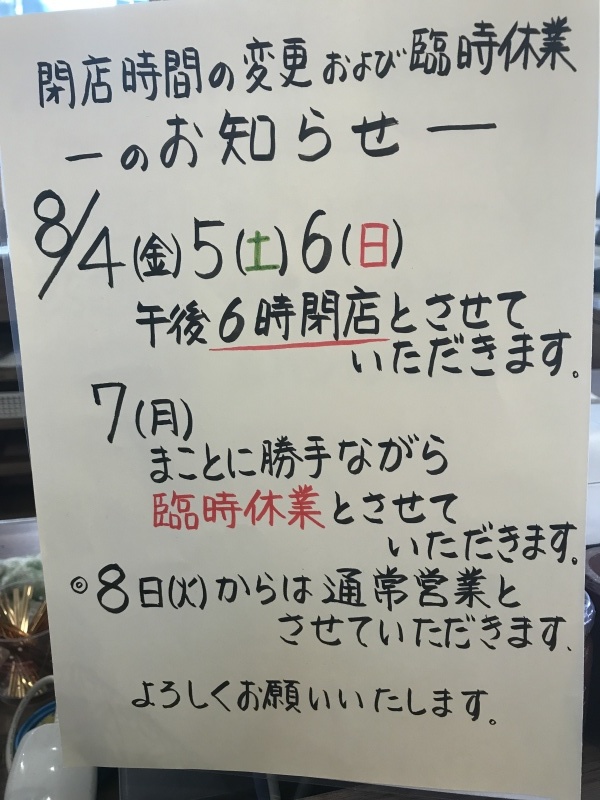 閉店時間の変更および臨時休業
ーのお知らせー
8/4(金)5(土)6(日)
午後6時閉店とさせて
いただきます。
7(月)
まことに勝手ながら
臨時休業とさせて
いただきます。
◎8日(火)からは通常営業と
させていただきます、
よろしくお願いいたします。